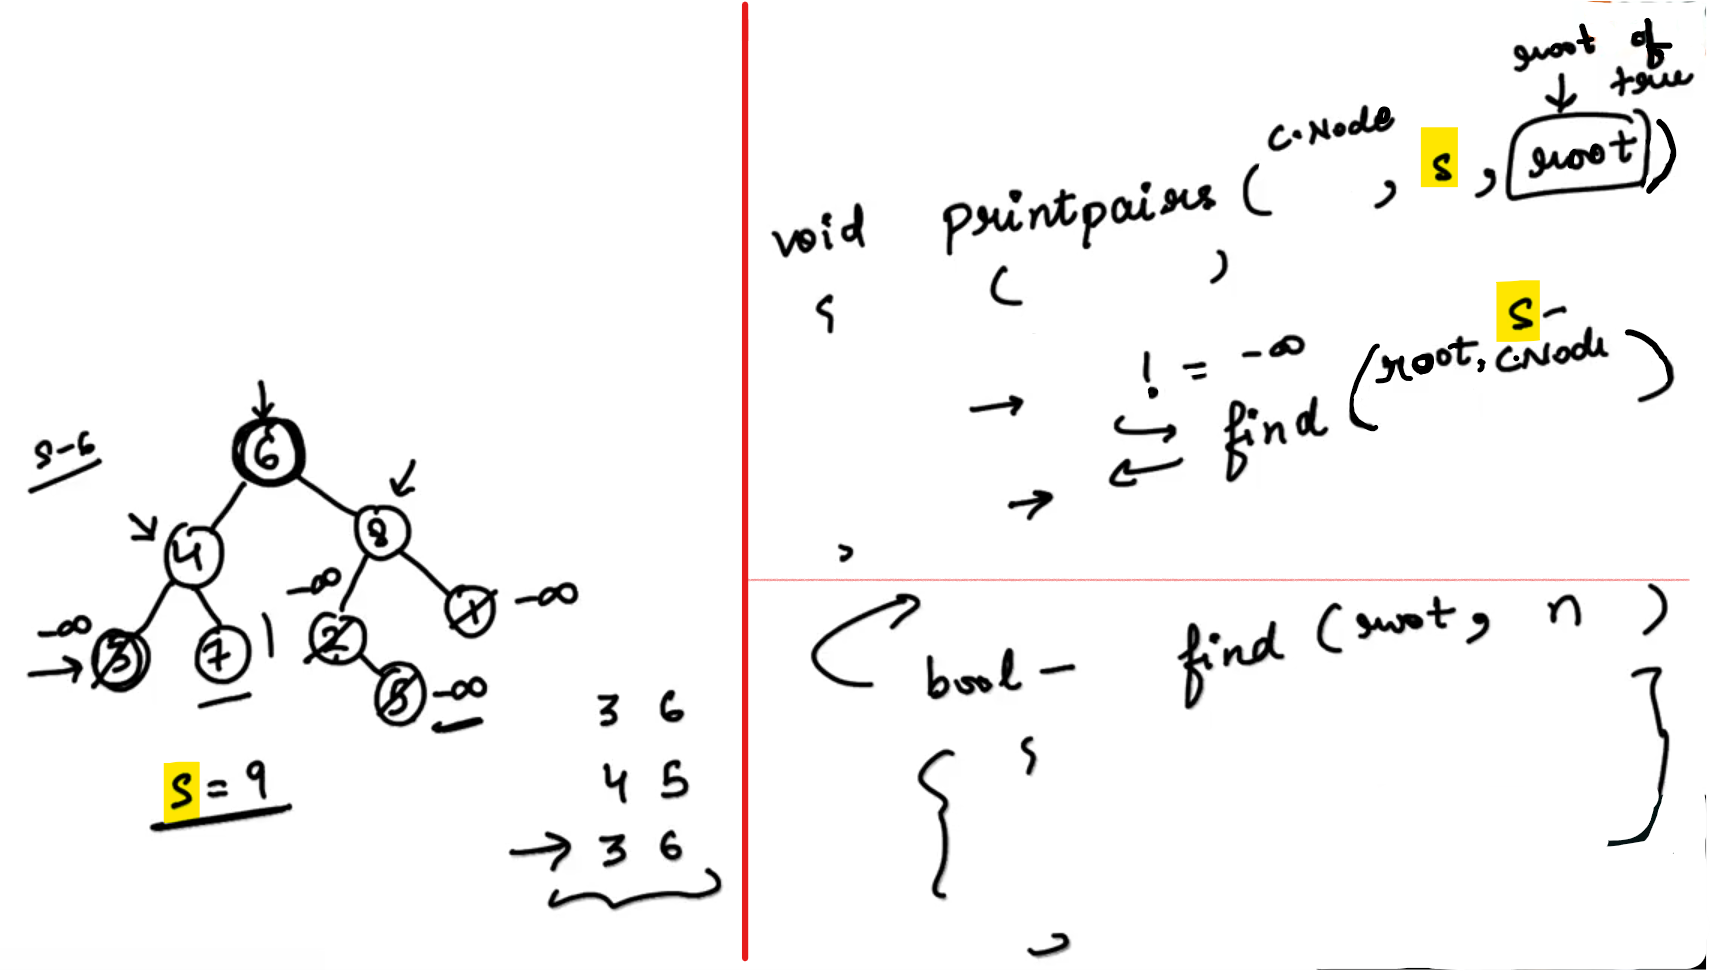 s-6
6
4
8
-∞
-∞
-∞
3
7
2
1
5
-∞
S = 9
3 6
4 5
→ 3 6
root of
tree
void printpairs ( C.Node , S , root )
{ ( )
→ ! = -∞
find ( root, S - C.Node )
→
}
bool - find ( root, n )
{
}